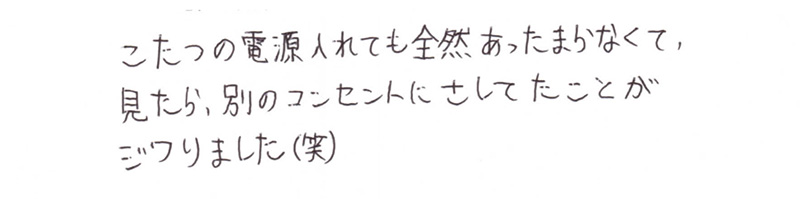 こたつの電源入れても全然あったまらなくて,
見たら、別のコンセントにさしてたことが
ジワりました(笑)